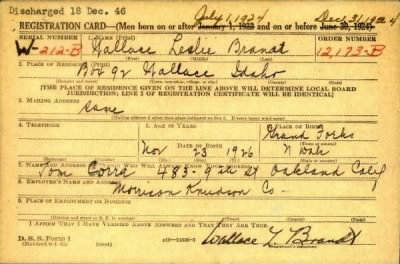 Discharged 18 Dec. 46
July 1, 1924 Dec 31, 1924
REGISTRATION CARD—(Men born on or after January 1, 1922 and on or before June 30, 1924)
SERIAL NUMBER 1. NAME (Print) ORDER NUMBER
W-212-B Wallace Leslie Brandt 12,173-B
2. PLACE OF RESIDENCE (Print)
Box 92 Wallace Idaho
[THE PLACE OF RESIDENCE GIVEN ON THE LINE ABOVE WILL DETERMINE LOCAL BOARD
JURISDICTION; LINE 2 OF REGISTRATION CERTIFICATE WILL BE IDENTICAL]
3. MAILING ADDRESS
Same
4. TELEPHONE 5. AGE IN YEARS 6. PLACE OF BIRTH
Grand Forks
DATE OF BIRTH
Nov 23 1926 N Dak
7. NAME AND ADDRESS OF PERSON WHO WILL ALWAYS KNOW YOUR ADDRESS
Tom 483-9th St Oakland Calif
8. EMPLOYER'S NAME AND ADDRESS
Morrison Knudson Co—
9. PLACE OF EMPLOYMENT OR BUSINESS
I AFFIRM THAT I HAVE VERIFIED ABOVE ANSWERS AND THAT THEY ARE TRUE.
D. S. S. Form 1
Wallace L. Brandt